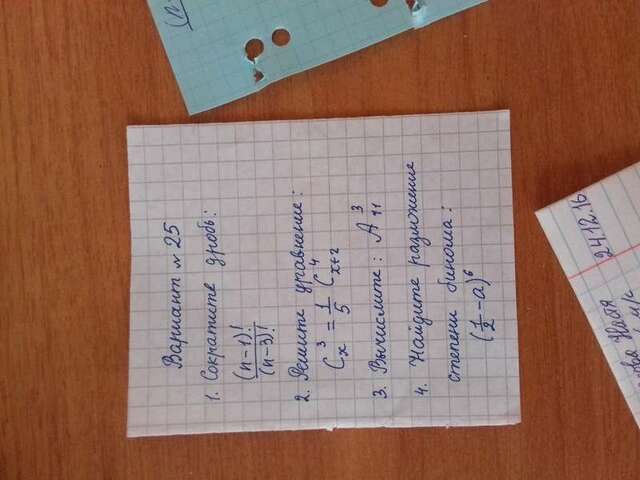 Вариант № 25
1. Сократите дробь:
(n-1)!
(n-3)!
2. Решите уравнение:
C_x^3 = 1/5 C_{x+2}^4
3. Вычислите: A_{11}^3
4. Найдите разложение
степени бинома:
(1/2 - a)^6
24.12.16
Настя